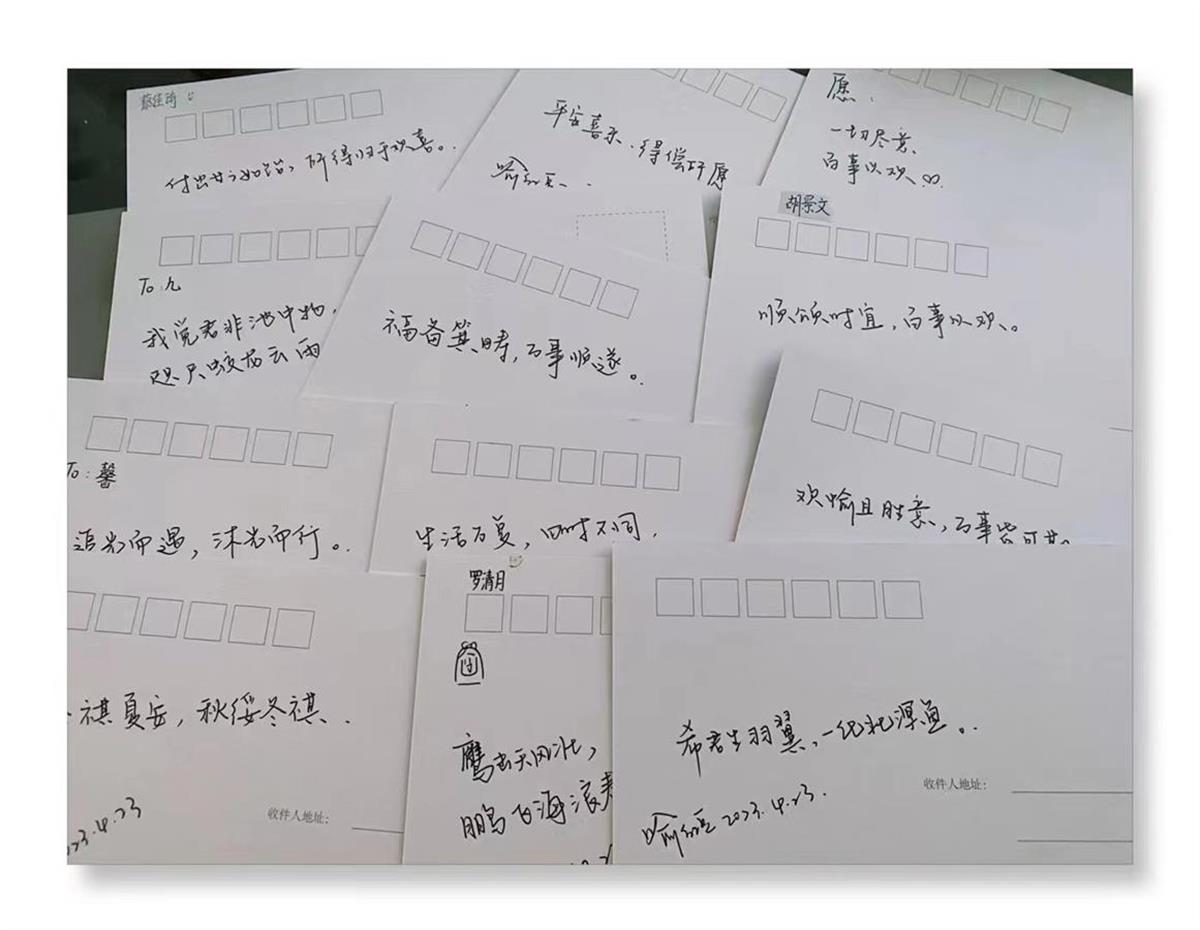 付出甘之如饴，所得归于欢喜。
平安喜乐，得偿所愿
愿：
一切尽意
百事从欢
To：九
我觉君非池中物，
咫尺蛟龙云雨
福备箕畴，百事顺遂。
胡景文
顺颂时宜，百事从欢。
To：馨
追光而遇，沐光而行。
生活百般，四时不同，
欢愉且胜意，万事皆可期
祺夏安，秋绥冬祺
23.4.23
收件人地址：
罗清月
鹰击天风壮，
鹏飞海浪春
希君生羽翼，一化北溟鱼。
收件人地址：
2023.4.23.